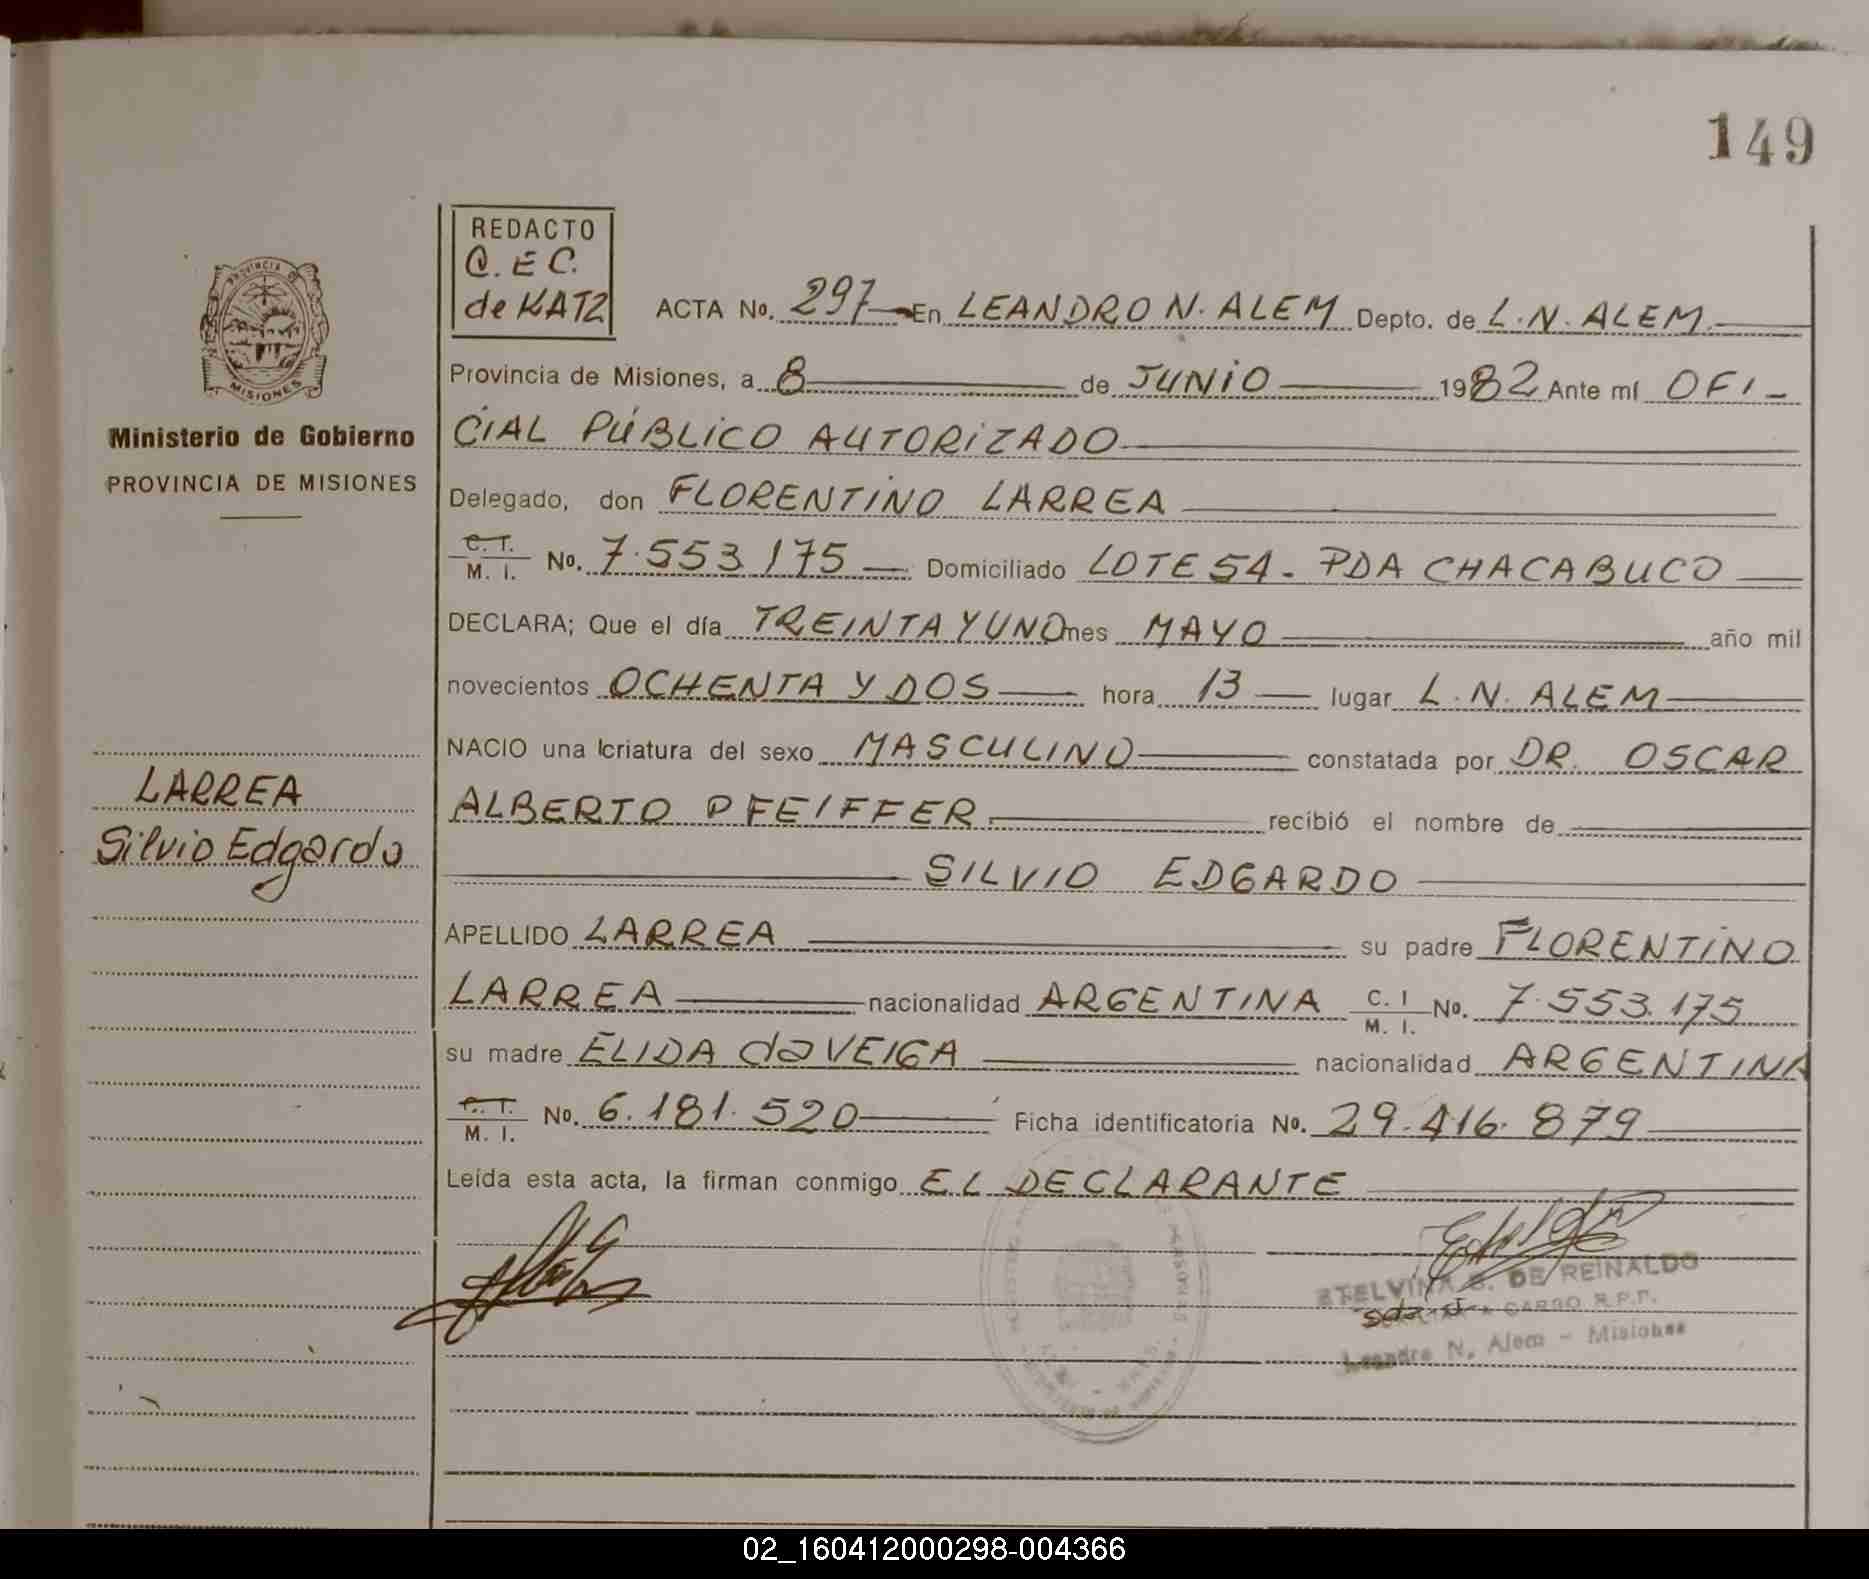 149
REDACTO
C. E C.
de KATZ
ACTA No. 297 En LEANDRO N. ALEM Depto. de L. N. ALEM
Provincia de Misiones, a 8 de JUNIO 1982 Ante mí OFI-
CIAL PÚBLICO AUTORIZADO
Delegado, don FLORENTINO LARREA
C. I. M. I. No. 7.553.175 Domiciliado LOTE 54 - PDA CHACABUCO
DECLARA; Que el día TREINTA Y UNO mes MAYO año mil
novecientos OCHENTA Y DOS hora 13 lugar L. N. ALEM
NACIO una criatura del sexo MASCULINO constatada por DR. OSCAR
ALBERTO PFEIFFER recibió el nombre de
SILVIO EDGARDO
APELLIDO LARREA su padre FLORENTINO
LARREA nacionalidad ARGENTINA C. I M. I. No. 7.553.175
su madre ELIDA da VEIGA nacionalidad ARGENTINA
C. I. M. I. No. 6.181.520 Ficha identificatoria No. 29.416.879
Leída esta acta, la firman conmigo EL DECLARANTE
PROVINCIA DE
MISIONES
Ministerio de Gobierno
PROVINCIA DE MISIONES
LARREA
Silvio Edgardo
DE REINALDO
A CARGO R.P.P.
Leandro N. Alem - Misiones
02_160412000298-004366